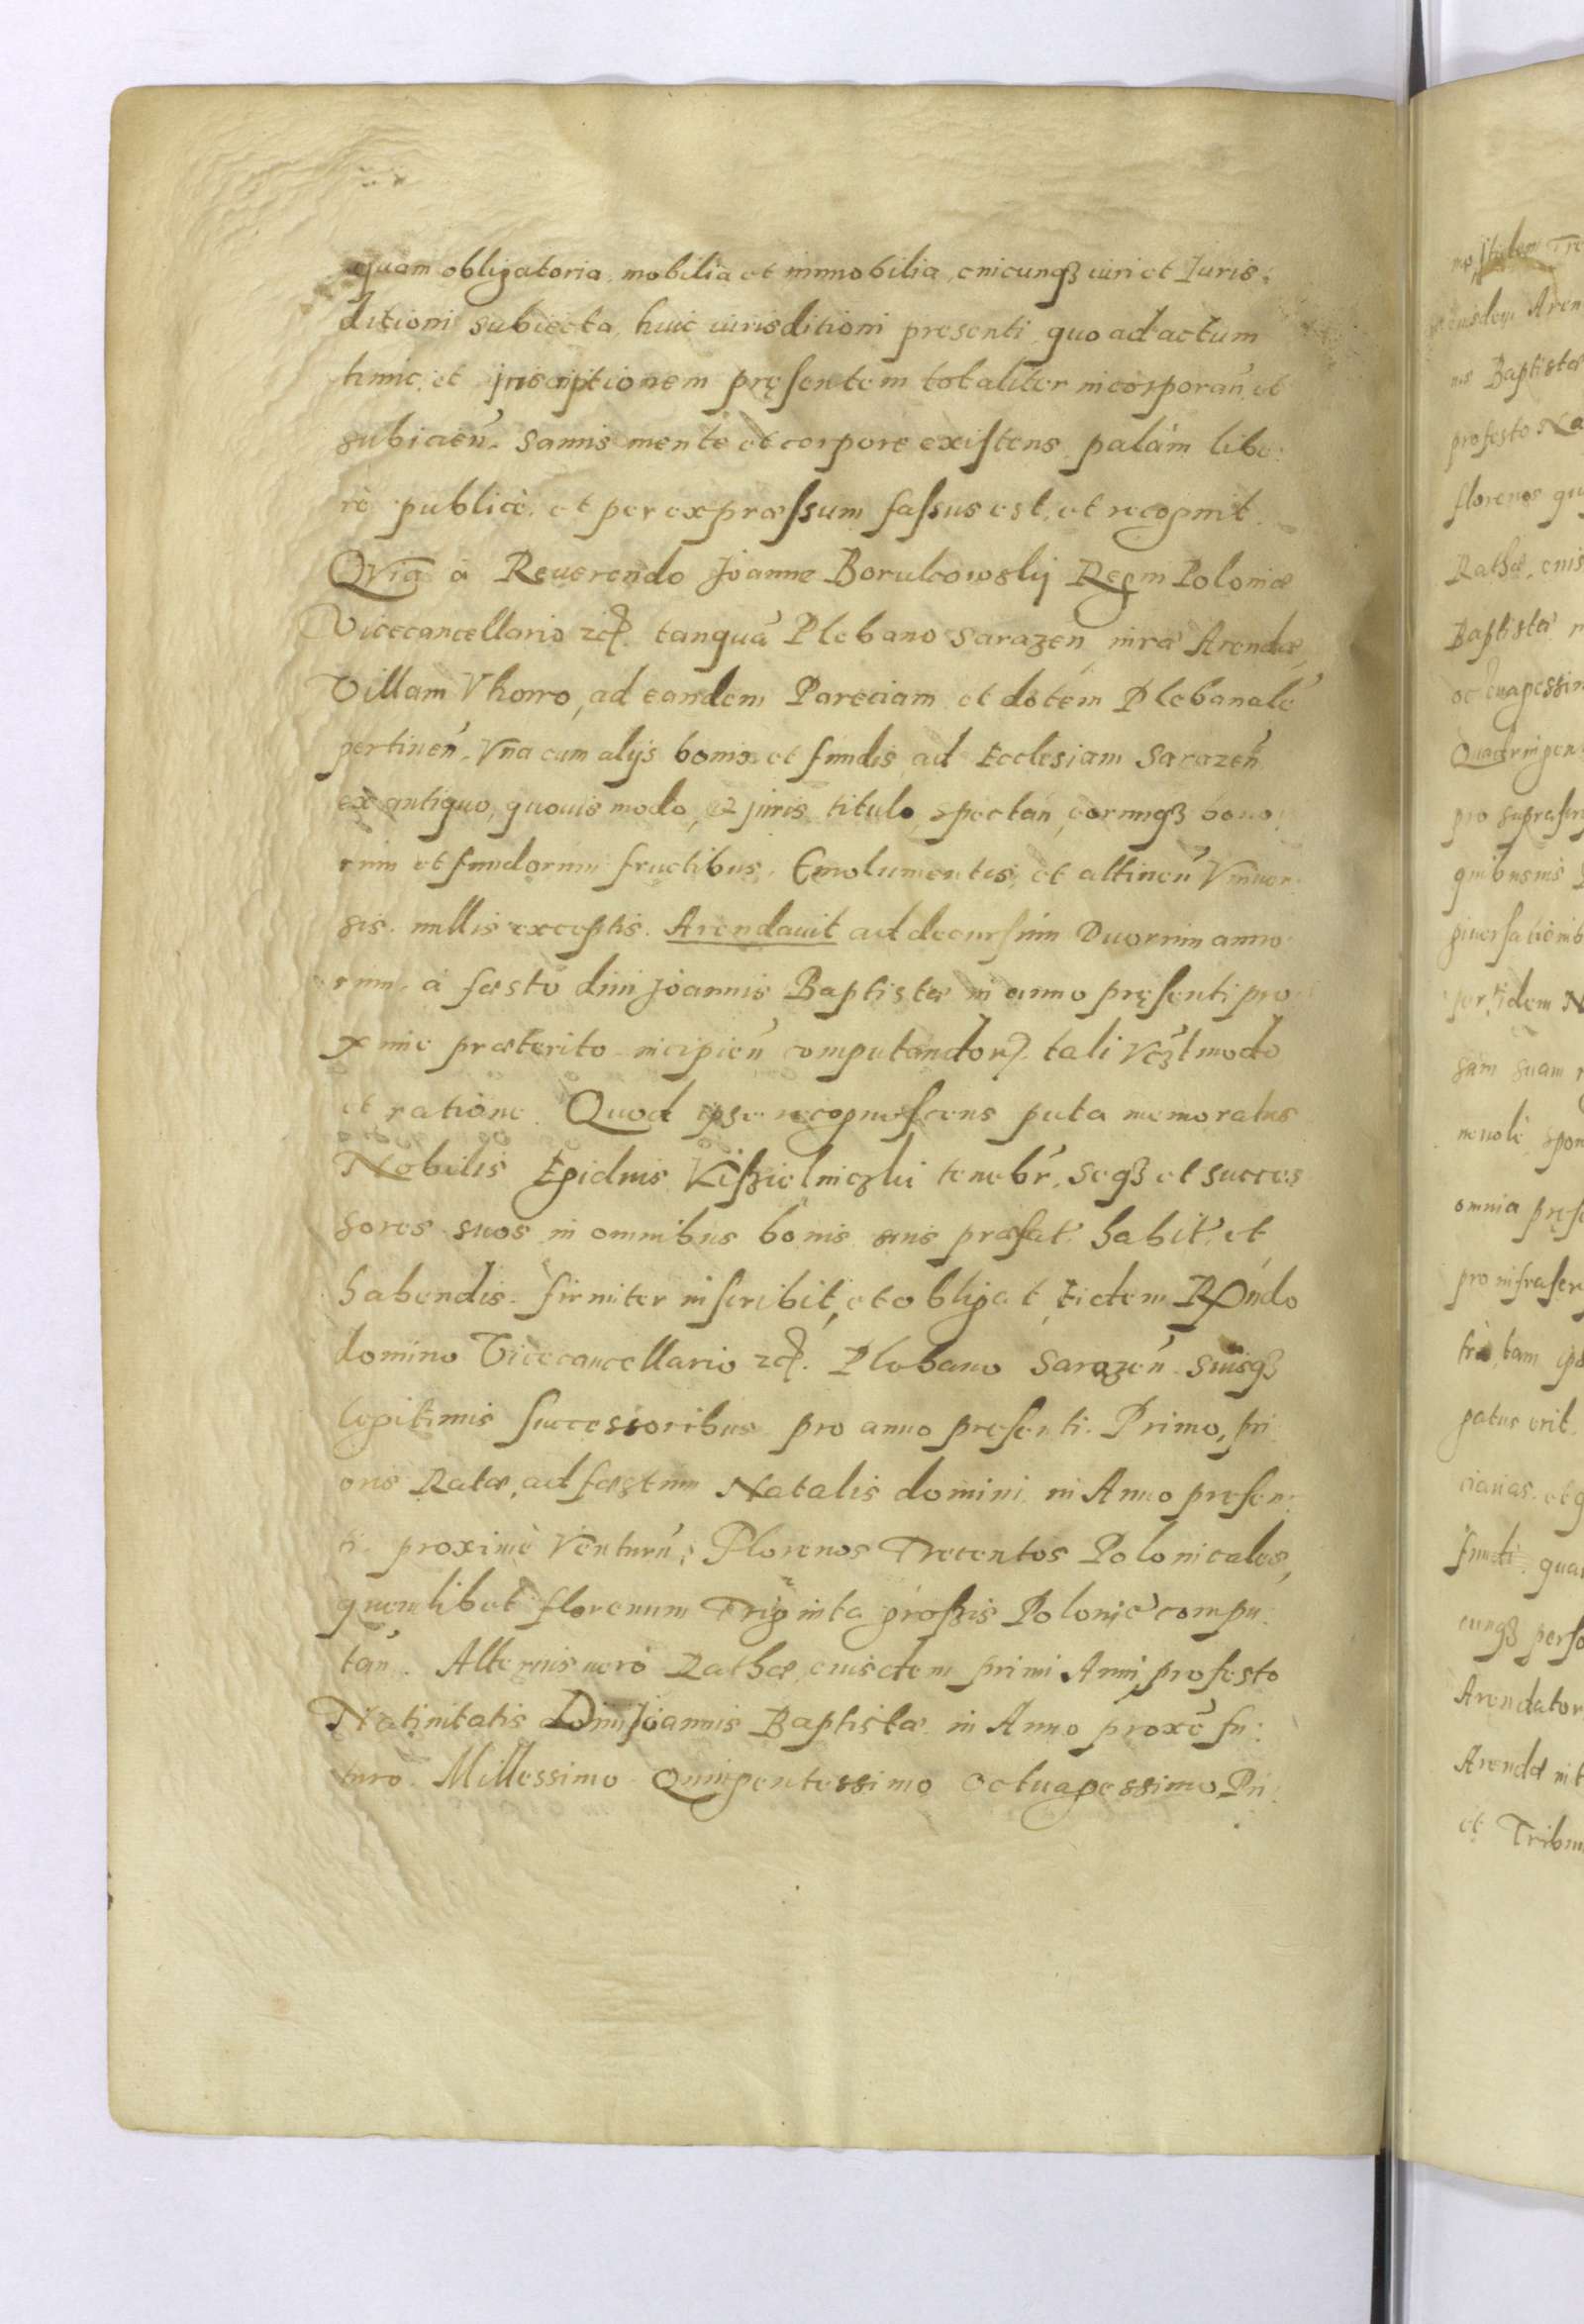 quam obligatoria, mobilia et immobilia, cuicunqꝫ iuri et Juris,
ditioni subiecta, huic iurisditioni presenti, quo ad actum
hunc, et inscriptionem pręsentem totaliter incorporan̄, et
subicien̄. Sanus mente et corpore existens, palám libe:
rè publicè, et per expræssum fassus est, et recognit.
Qvia à Reuerendo Joanne Borukowskij Regni Poloniæ
Vicecancellario etc. tanquā Plebano Sarazen, iuræ Arendæ,
Villam Vhowo, ad eandem Pareciam et dotem Plebanalē
pertinen̄. Vna cum alijs bonis et fundis ad Ecclesiam Sarazen̄
ex antiquo, quouis modo, et juris titulo, spectan̄, eorumqꝫ bono:
rum et fundorum fructibus, Emolumentis, et attinen̄ Vniuer:
sis, nullis exceptis. Arendauit ad decursum Duorum anno:
rum, à fæsto diui Joannis Baptistæ in anno pręsenti pro
xime præterito incipien̄ computandor̄, tali vꝫt modo
et ratione. Quod ipse recognoscens puta memoratus
Nobilis Egidius Kißielniczki tenebr̄, seqꝫ et succes
sores suos in omnibus bonis suis præfat. habit. et
habendis firmiter inscribit, et obligat, Eidem Rṇdo
domino Vicecancellario etc. Plebano Sarazen̄ suisqꝫ
legitimis successoribus pro anno presenti. Primo, pri
oris Ratæ, ad fæstum Natalis domini in Anno presen:
ti proximè venturū, Florenos Trecentos Polonicales,
quemlibet florenum Triginta großis Polonię compu:
tan̄. Alterius uerò Rathæ, eiusdem primi Anni, profesto
Natiuitatis Diui Joannis Baptistæ in Anno proxē fu:
turo. Millessimo Quingentessimo Octuagessimo Pri: